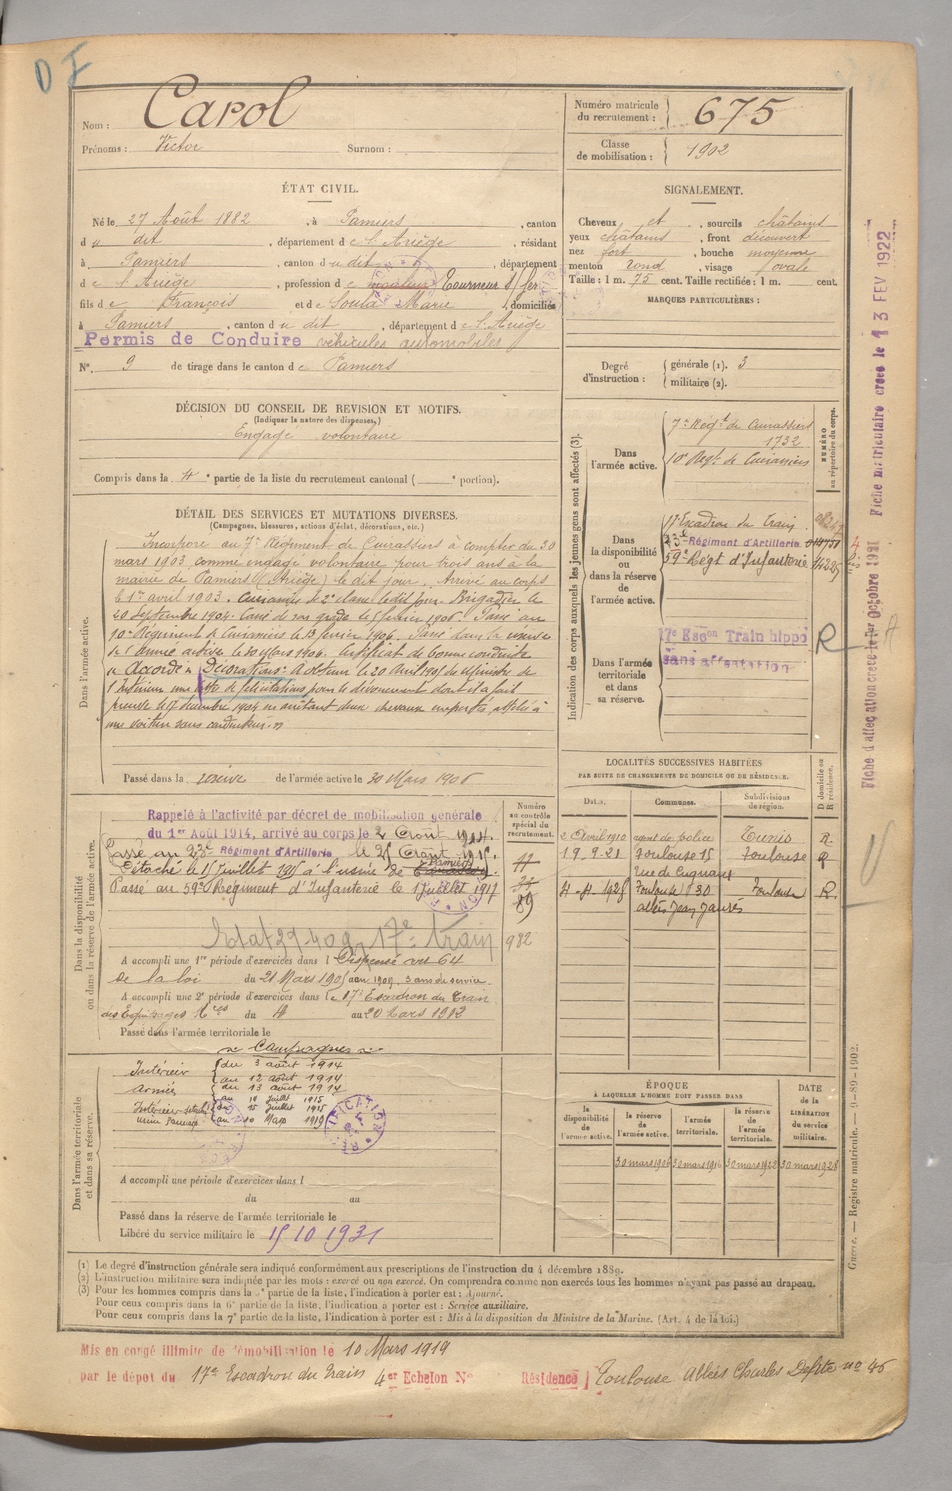 D F
Nom : Carol
Prénoms : Victor Surnom :
Numéro matricule du recrutement : 675
Classe de mobilisation : 1902
ÉTAT CIVIL.
Né le 27 Août 1882, à Pamiers, canton
du dit, département de l'Ariège, résidant
à Pamiers, canton du dit, département
de l'Ariège, profession de Tourneur s/ fer
fils de François et de Soula Marie, domiciliés
à Pamiers, canton du dit, département de l'Ariège
Permis de Conduire véhicules automobiles
N° 9 de tirage dans le canton de Pamiers
SIGNALEMENT.
Cheveux et, sourcils châtains
yeux châtains, front découvert
nez fort, bouche moyenne
menton rond, visage ovale
Taille : 1 m. 75 cent. Taille rectifiée : 1 m. cent.
MARQUES PARTICULIÈRES :
Degré d'instruction : générale (1). 3
militaire (2).
DÉCISION DU CONSEIL DE REVISION ET MOTIFS.
(Indiquer la nature des dispenses.)
Engagé volontaire
Compris dans la 4e partie de la liste du recrutement cantonal ( e portion).
DÉTAIL DES SERVICES ET MUTATIONS DIVERSES.
(Campagnes, blessures, actions d'éclat, décorations, etc.)
Dans l'armée active.
Incorporé au 7e Régiment de Cuirassiers à compter du 30
mars 1903, comme engagé volontaire pour trois ans à la
mairie de Pamiers (Ariège) le dit jour. Arrivé au corps
le 1er avril 1903. Cuirassier de 2e classe le dit jour. Brigadier le
20 Septembre 1904. Cassé de son grade le février 1906. Passé au
10e Régiment de Cuirassiers le 13 février 1906. Passé dans la réserve
de l'Armée active le 30 Mars 1906. Certificat de bonne conduite
Accordé. Décorations : A obtenu le 20 Avril 1905 du Ministre de
l'Intérieur une lettre de félicitations pour le dévouement dont il a fait
preuve le 17 décembre 1904 en arrêtant deux chevaux emportés, attelés à
une voiture sans conducteur.
Passé dans la réserve de l'armée active le 30 Mars 1906
Indication des corps auxquels les jeunes gens sont affectés (3).
NUMÉRO au répertoire du corps.
Dans l'armée active.
7e Régt de Cuirassiers
1732
10e Regt de Cuirassiers
Dans la disponibilité ou dans la réserve de l'armée active.
17 Escadron du Train
23e Régiment d'Artillerie
59e Régt d'Infanterie
Dans l'armée territoriale et dans sa réserve.
17e Escon Train hippo
sans affectation
R
Fiche d'affectation créée le 1er Octobre 1921
Fiche matriculaire créée le 13 FEV 1922
LOCALITÉS SUCCESSIVES HABITÉES
PAR SUITE DE CHANGEMENTS DE DOMICILE OU DE RÉSIDENCE.
Dates. Communes. Subdivisions de région. D domicile ou R résidence.
2 Avril 1910 agent de police Tunis R.
19.9.21 Toulouse 15 Toulouse R
Rue de Cugnaux
Toulouse 30 Toulouse R
allées Jean Jaurès
Dans la disponibilité ou dans la réserve de l'armée active.
Numéro au contrôle spécial du recrutement.
Rappelé à l'activité par décret de mobilisation générale
du 1er Août 1914, arrivé au corps le 2 Août 1914.
Passé au 23e Régiment d'Artillerie le 25 Août 1915.
Détaché le 15 Juillet 1915 à l'usine de Pamiers
Passé au 59e Régiment d'Infanterie le 1 juillet 1917
89
932
17e Train
A accompli une 1re période d'exercices dans l Dispensé art 64
de la loi du 21 Mars 1905
A accompli une 2e période d'exercices dans le 17e Escadron du Train
des Equipages Mres du 4 au 20 Mars 1912
Passé dans l'armée territoriale le
Dans l'armée territoriale et dans sa réserve.
Campagnes
Intérieur du 3 août 1914
au 12 août 1914
armées du 13 août 1914
au 14 juillet 1915
Intérieur du 15 juillet 1915
usine Pamiers au 10 Mars 1919
A accompli une période d'exercices dans l
du au
Passé dans la réserve de l'armée territoriale le
Libéré du service militaire le 15 10 1931
ÉPOQUE
À LAQUELLE L'HOMME DOIT PASSER DANS
la disponibilité de l'armée active. la réserve de l'armée active. l'armée territoriale. la réserve de l'armée territoriale.
DATE de la LIBÉRATION du service militaire.
30 mars 1906 30 mars 1916 30 mars 1922 30 mars 1928
Guerre. — Registre matricule. — 9-89-1902.
(1) Le degré d'instruction générale sera indiqué conformément aux prescriptions de l'instruction du 4 décembre 1889.
(2) L'instruction militaire sera indiquée par les mots : exercé ou non exercé. On comprendra comme non exercés tous les hommes n'ayant pas passé au drapeau.
(3) Pour les hommes compris dans la 5e partie de la liste, l'indication à porter est : Ajourné.
Pour ceux compris dans la 6e partie de la liste, l'indication à porter est : Service auxiliaire.
Pour ceux compris dans la 7e partie de la liste, l'indication à porter est : Mis à la disposition du Ministre de la Marine. (Art. 4 de la loi.)
Mis en congé illimité de démobilisation le 10 Mars 1919
par le dépôt du 17e Escadron du Train 4er Echelon N° Résidence Toulouse Allées Charles Defite no 46